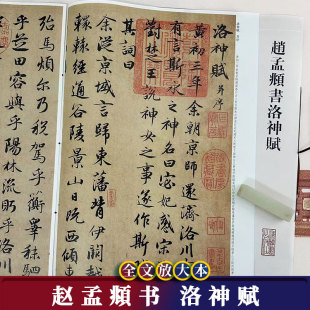 趙孟頫書洛神賦
洛神賦 并序
黃初三年余朝京師還濟洛川
有言斯水之神名曰宓妃感宋
對楚之王說神女之事遂作斯
其詞曰
余從京域言歸東藩背伊闕越
轘轅經通谷陵景山日既西傾車
殆馬煩尔乃稅駕乎蘅皋秣駟
乎芝田容與乎陽林流眄乎洛川
全文放大本
赵孟頫书 洛神赋